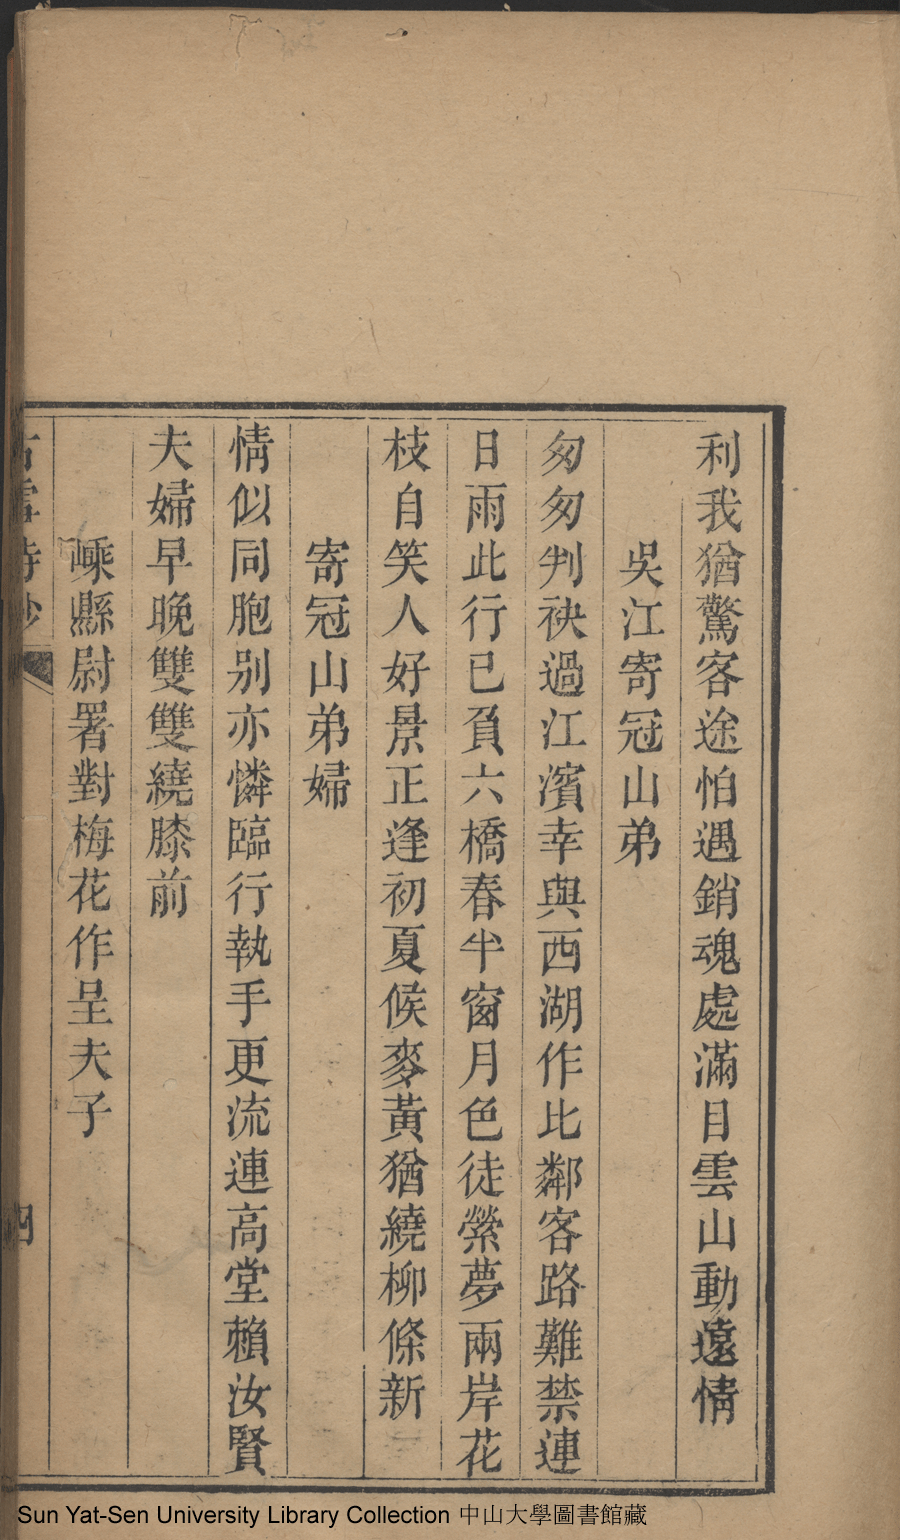 利我猶驚客途怕遇銷魂處滿目雲山動遠情
吳江寄冠山弟
匆匆判袂過江濱幸與西湖作比鄰客路難禁連
日雨此行已負六橋春半窗月色徒縈夢兩岸花
枝自笑人好景正逢初夏候麥黃猶繞柳條新
寄冠山弟婦
情似同胞别亦憐臨行執手更流連高堂賴汝賢
夫婦早晚雙雙繞膝前
嵊縣尉署對梅花作呈夫子
古雪詩鈔
四
Sun Yat-Sen University Library Collection 中山大學圖書館藏